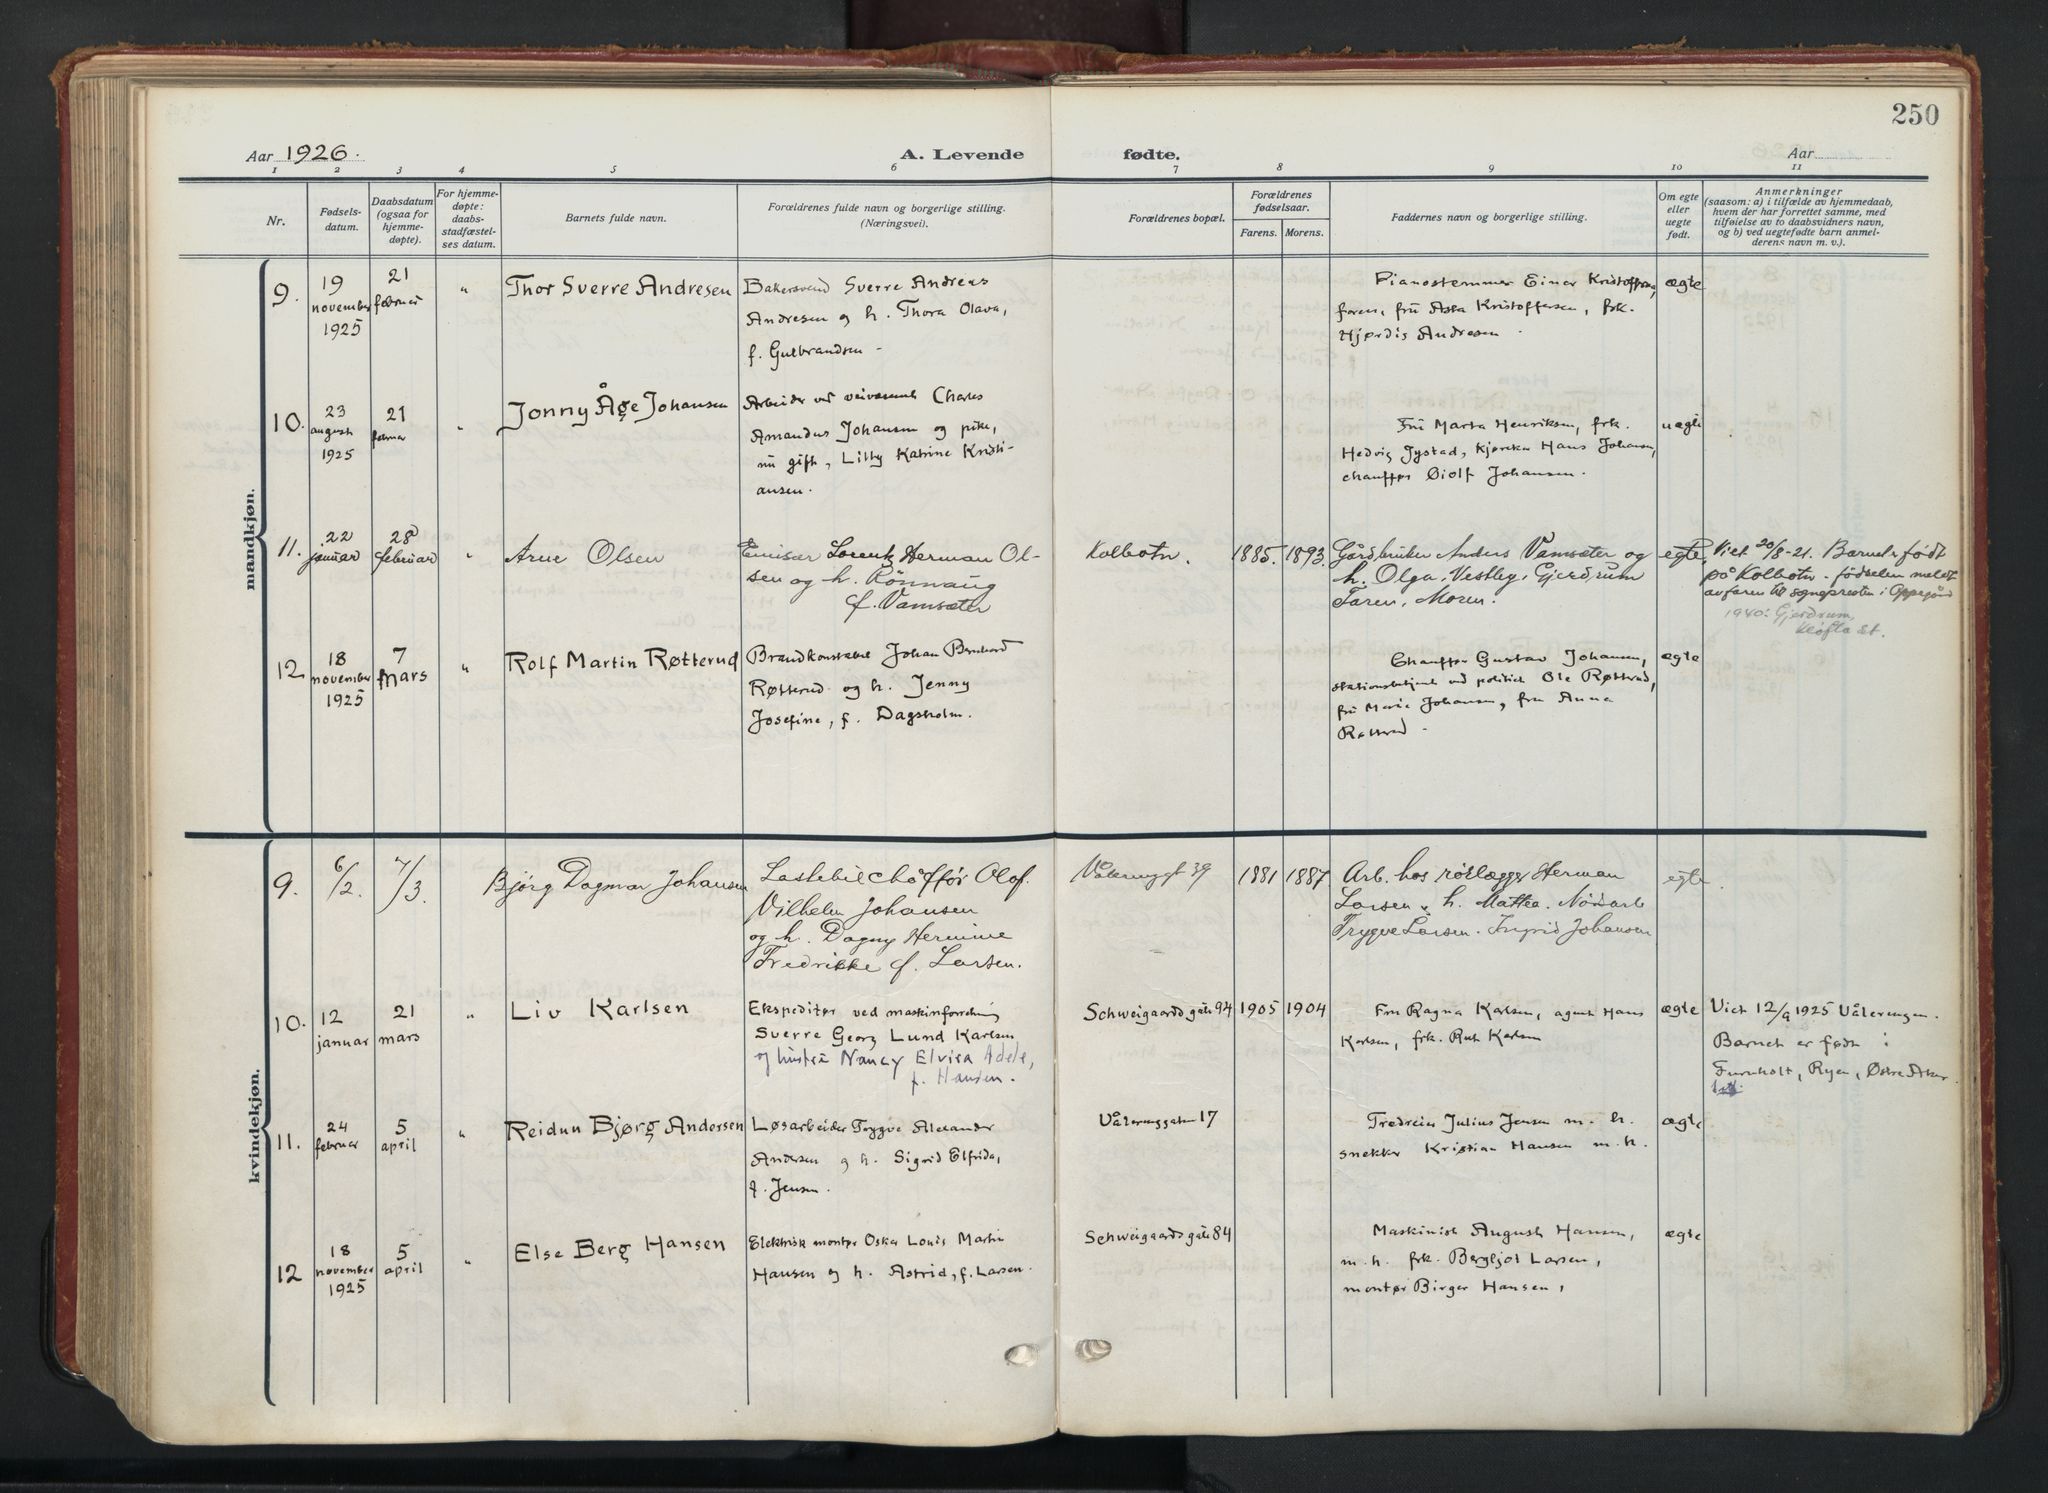 250
Aar 1926.
A. Levende
fødte.
Aar
1 2 3 4 5 6 7 8 9 10 11
Nr.
Fødsels-
datum.
Daabsdatum
(ogsaa for
hjemme-
døpte).
For hjemme-
døpte:
daabs-
stadfæstel-
ses datum.
Barnets fulde navn.
Forældrenes fulde navn og borgerlige stilling.
(Næringsvei).
Forældrenes bopæl.
Forældrenes
fødselsaar.
Farens. Morens.
Faddernes navn og borgerlige stilling.
Om egte
eller
uegte
født.
Anmerkninger
(saasom: a) i tilfælde av hjemmedaab,
hvem der har forrettet samme, med
tilføielse av to daabsvidners navn,
og b) ved uegtefødte barn anmel-
derens navn m. v.).
mandkjøn.
9.
19
november
1925
21
februar
"
Thor Sverre Andresen
Bakersvend Sverre Andreas
Andresen og h. Thora Olava,
f. Gulbrandsen -
Pianostemmer Einar Kristoffersen,
faren, frü Asta Kristoffersen, frk.
Hjørdis Andresen
ægte
10.
23
august
1925
21
februar
"
Jonny Åge Johansen
Arbeider ved veivæsenet Charles
Amandus Johansen og pike,
nu gift, Lilly Katrine Kristi-
ansen.
Frü Marta Henriksen, frk.
Hedvig Jystad, kjøreka Hans Johansen,
chauffør Øiolf Johansen.
uægte
11.
22
januar
28
februar
"
Arne Olsen
Emisær Lorentz Herman Ol-
sen og h. Rönnaug
f. Vamsæter
Kolbotn.
1885. 1893.
Gårdbruker Anders Vamsæter og
h. Olga, Vestby, Gjerdrum
Faren, Moren.
egte
Viet 20/8-21. Barnet er født
på Kolbotn. fødselen meldt
av faren til sognepresten i Oppegård
1940: Gjerdrum,
Kløfta st.
12.
18
november
1925
7
Mars
"
Rolf Martin Røtterud
Brandkonstabel Johan Bernhard
Røtterud og h. Jenny
Josefine, f. Dagsholm.
Chauffør Gustav Johansen,
stationsbetjent ved politiet Ole Røtterud,
frü Marie Johansen, fru Anna
Røtterud -
ægte
kvindekjøn.
9.
6/2.
7/3.
Bjørg Dagmar Johansen
Lastebilchåffør Olof
Vilhelm Johansen
og h. Dagny Hermine
Fredrikke f. Larsen.
Vålerenggt 39
1881 1887
Arb. hos rørlægger Herman
Larsen & h. Mattea.
Trygve Larsen. Ingrid Johansen
egte.
10.
12
januar
21
mars
"
Liv Karlsen
Ekspeditør ved maskinforretning
Sverre Georg Lund Karlsen
og hustru Nancy Elvira Adele,
f. Hansen.
Schweigaards gate 94
1905 1904
Fru Ragna Karlsen, agent Hans
Karlsen, frk. Rut Karlsen
ægte
Viet 12/9 1925 Vålerengen.
Barnet er født i
Furuholt, Ryen, Østre Aker
11.
24
februar
5
april
"
Reidun Bjørg Andersen
Løsarbeider Trygve Alexander
Andersen og h. Sigrid Elfrida,
f. Jensen.
Vålerenggaten 17
Julius Jensen m. h.
snekker Kristian Hansen m. h.
ægte
12
18
november
1925
5
april
"
Else Berg Hansen
Elektrisk montør Oskar Louis Martin
Hansen og h. Astrid, f. Larsen.
Schweigaards gate 84
Maskinist August Hansen,
m. h. frk. Bergljot Larsen,
montør Birger Hansen,
ægte